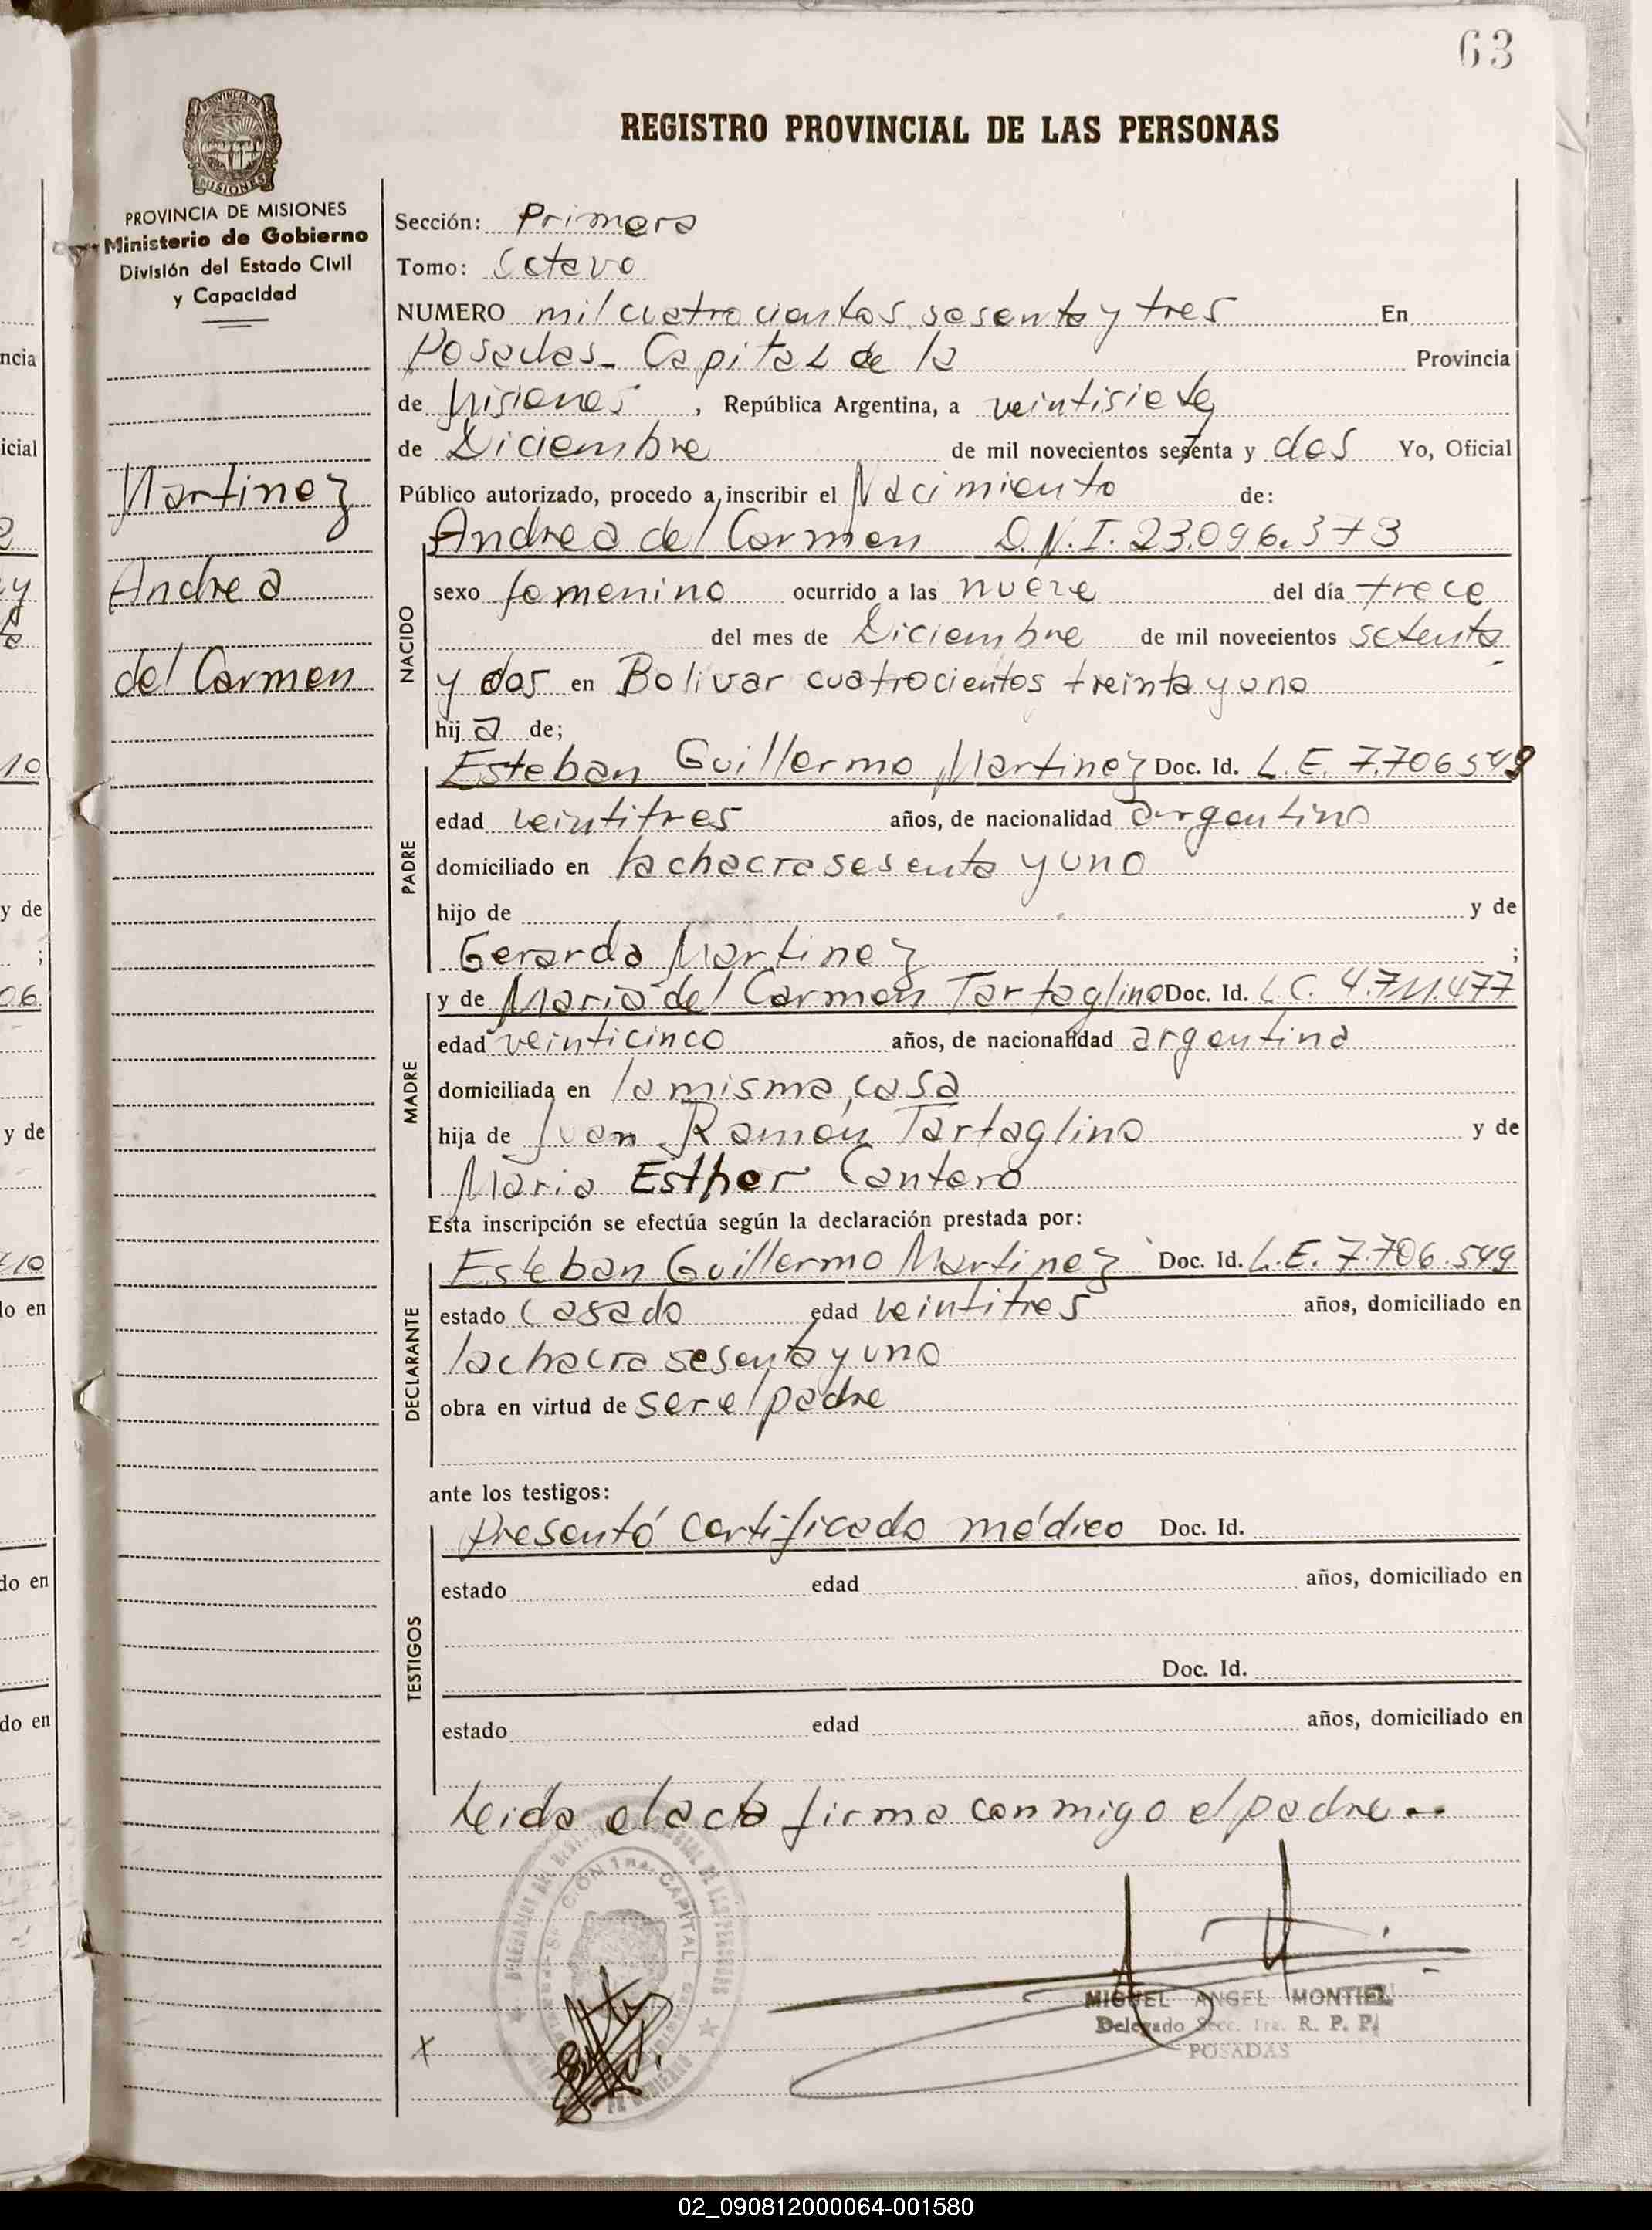 63
REGISTRO PROVINCIAL DE LAS PERSONAS
PROVINCIA DE MISIONES
Ministerio de Gobierno
División del Estado Civil
y Capacidad
Martinez
Andrea
del Carmen
Sección: Primera
Tomo: Octavo
NUMERO mil cuatrocientos sesenta y tres En
Posadas - Capital de la Provincia
de Misiones, República Argentina, a veintisiete
de Diciembre de mil novecientos setenta y dos Yo, Oficial
Público autorizado, procedo a inscribir el Nacimiento de:
Andrea del Carmen D.N.I. 23.096.373
NACIDO
sexo femenino ocurrido a las nueve del día trece
del mes de Diciembre de mil novecientos setenta
y dos en Bolivar cuatrocientos treinta y uno
hija de;
PADRE
Esteban Guillermo Martinez Doc. Id. L.E. 7.706.549
edad veintitres años, de nacionalidad argentino
domiciliado en la chacra sesenta y uno
hijo de y de
Gerarda Martinez ;
MADRE
y de Maria del Carmen Tartaglino Doc. Id. L.C. 4.711.477
edad veinticinco años, de nacionalidad argentina
domiciliada en la misma casa
hija de Juan Ramón Tartaglino y de
Maria Esther Cantero
Esta inscripción se efectúa según la declaración prestada por:
DECLARANTE
Esteban Guillermo Martinez Doc. Id. L.E. 7.706.549
estado casado edad veintitres años, domiciliado en
la chacra sesenta y uno
obra en virtud de ser el padre
ante los testigos:
TESTIGOS
Presentó certificado médico Doc. Id.
estado edad años, domiciliado en
Doc. Id.
estado edad años, domiciliado en
Leida el acta firma conmigo el padre
MIGUEL ANGEL MONTIEL
Delegado Secc. 1ra. R. P. P.
POSADAS
X
02_090812000064-001580